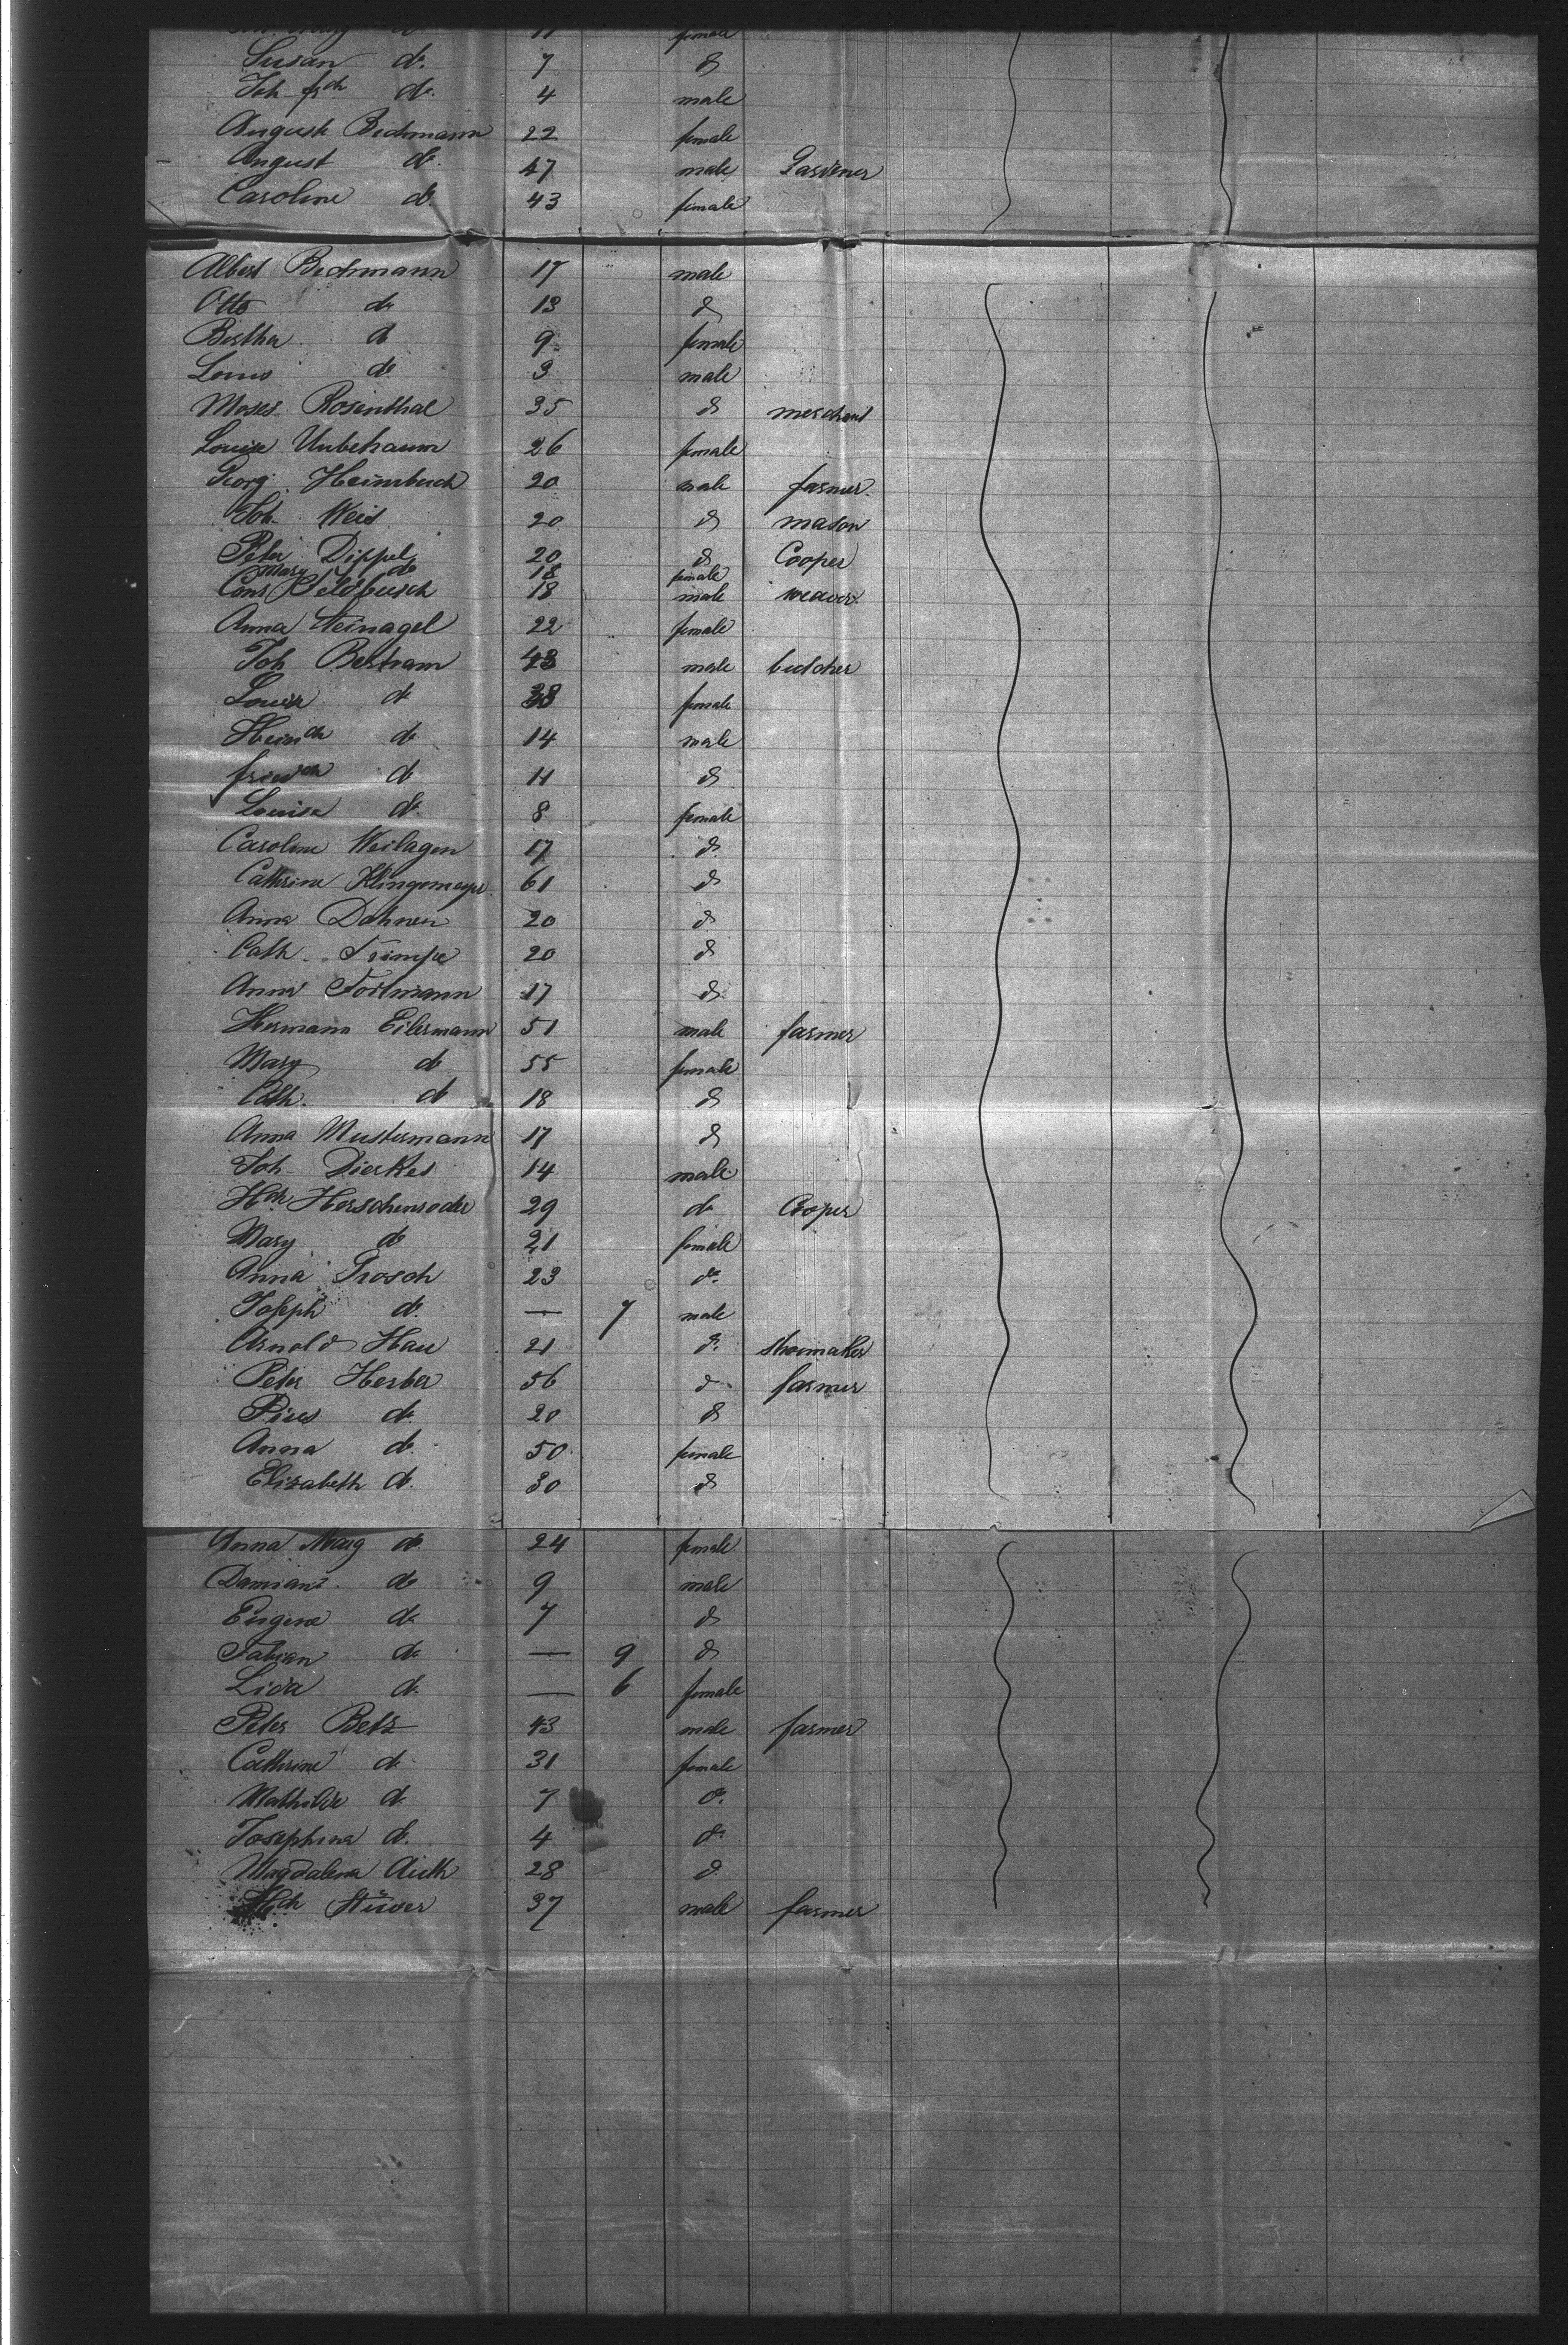 11 female
Susan do. 7 do
Joh. frdh do. 4 male
August Bechmann 22 female
August do. 47 male Gardener
Caroline do. 43 female
Albert Bechmann 17 male
Otto do 13 do
Bertha do 9 female
Louis do 3 male
Moses Rosenthal 35 do merchant
Louise Unbehaum 26 female
Georg Heimbuch 20 male farmer.
Joh. Weis 20 do mason
Peter Dippel 20 do Cooper
Mary do 18 female
Cons Feldbusch 18 male weaver.
Anna Steinagel 22 female
Joh Bertram 43 male butcher
Louisa do 38 female
Heinch do 14 male
friedch do 11 do
Louisa do. 8 female
Caroline Weilagen 17 do.
Cathrine Klingemeyer 61 do
Anna Dahmen 20 do
Cath. Trimpe 20 do
Anna Fortmann 17 do.
Hermann Eilermann 51 male farmer
Mary do 55 female
Cath. do 18 do
Anna Mustermann 17 do
Joh. Dierkes 14 male
Hch Herschenroder 29 do Cooper
Mary do 21 female
Anna Grosch 23 do.
Joseph do. — 7 male
Arnold Hau 21 do. shoemaker
Peter Herber 56 do farmer
Pires do. 20 do
Anna do. 50 female
Elizabeth do. 30 do
Anna Marg do. 24 female
Damian do 9 male
Eugene do 7 do
Fabian do — 9 do
Lida do. — 6 female
Peter Betz 43 male farmer
Cathrine do. 31 female
Mathilde do 7 do.
Josephina do. 4 do
Magdalena Auth 28 do.
Hch Stüver 37 male farmer